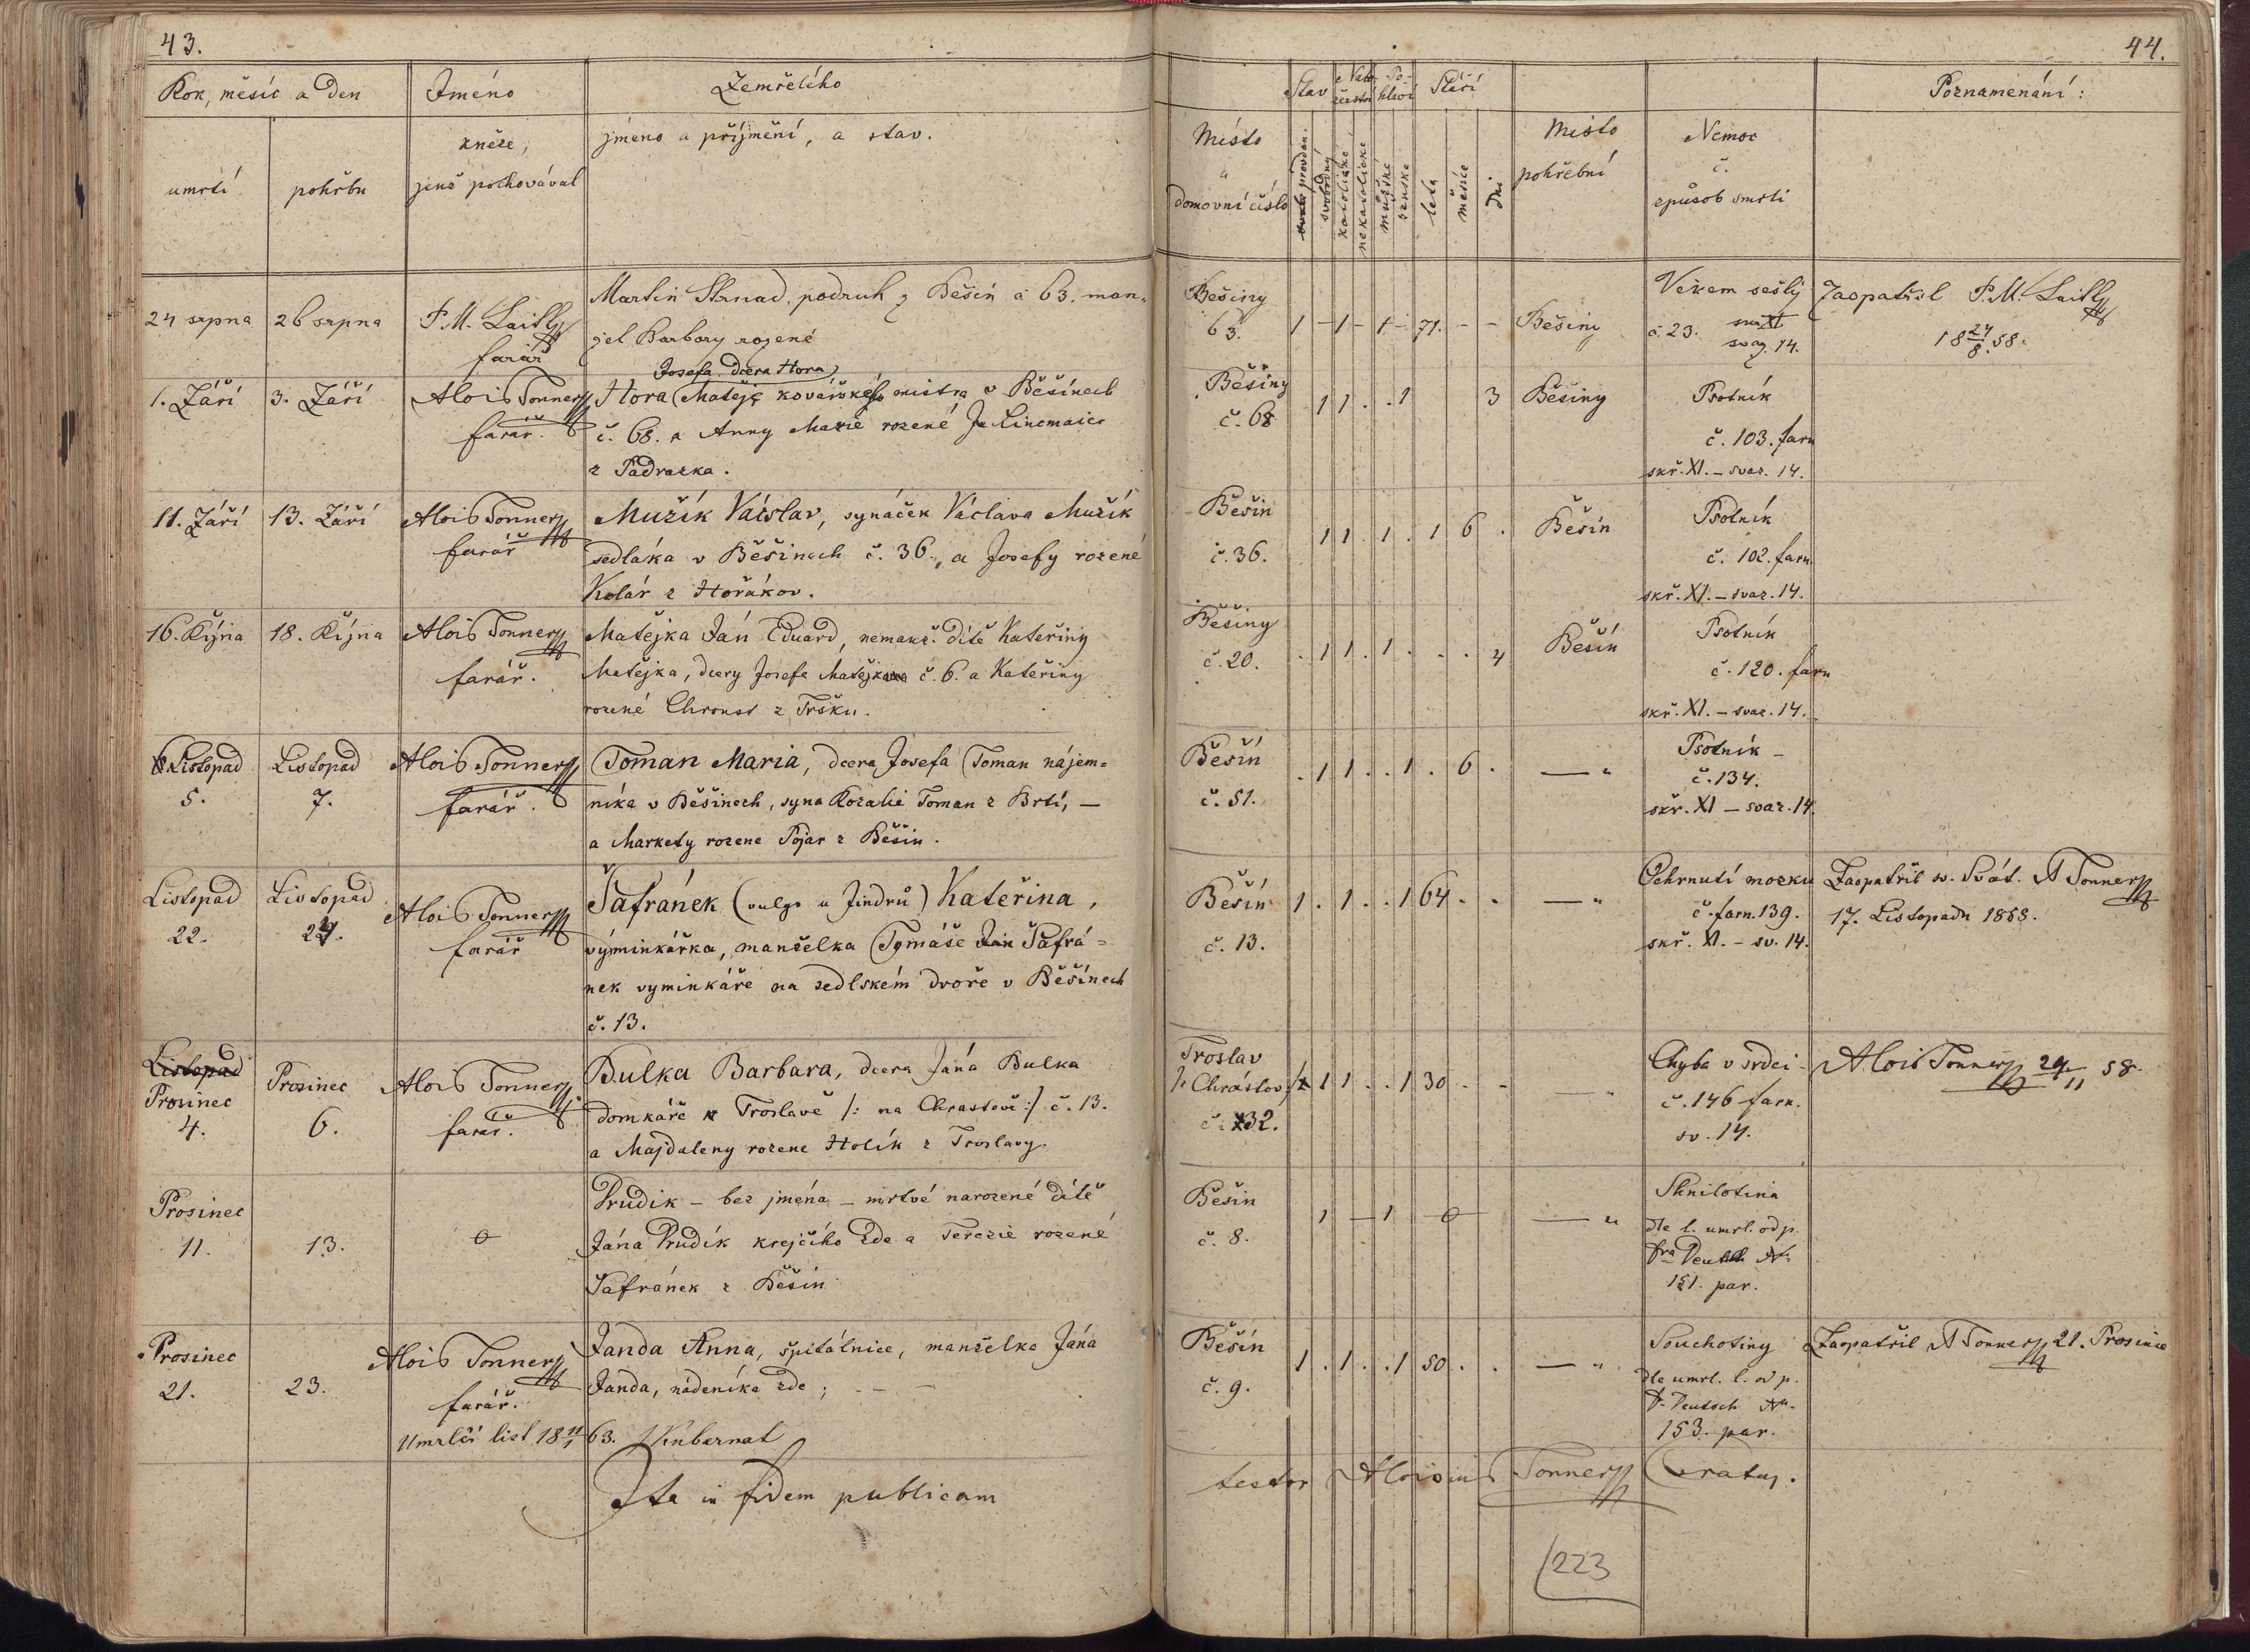 43.
Rok, měsíc a den
Jméno
Zemřelího
umrtí
pohřbu
kněze,
jenž pochovával
jméno a příjmění, a stav.
24 srpna
26 srpna
P. M. Laitl
farář
Martin Strnad, podruh z Běšin č 63. man-
žel Barbory rozené
1. Září
3. Září
Alois Tonner
farář.
Josefa dcera Hora
Hora Matěje kovářského mistra v Běšinech
č. 68. a Anny Marie rozené
z Padrazka.
11. Září
13. Září
Alois Tonner
farář
Mužík Václav, synáček Václava Mužík
sedláka v Běšinech č. 36., a Josefy rozené
Kolár z Hořákov.
16. Října
18. Října
Alois Tonner
farář.
Matějka Ján Eduard, nemanž. dítě Kateřiny
Matějka, dcery Josefa Matějka č. 6. a Kateřiny
rozené Chroust z Tršku.
Listopad
5.
Listopad
7.
Alois Tonner
farář.
Toman Maria, dcera Josefa Toman nájem=
níka v Běšinech, syna Rozalie Toman z Brtí, —
a Markety rozene Pojar z Běšin.
Listopad
22.
Listopad
24.
Alois Tonner
farář
Šafránek (vulgo u Jindrů) Kateřina,
výminkářka, manželka Tymáše Jan Šafrá=
nek vyminkáře na sedlském dvoře v Běšínech
č. 13.
Listopad
Prosinec
4.
Prosinec
6.
Alois Tonner
farář.
Bulka Barbara, dcera Jána Bulka
domkáře Troslavě /: na Chrastově :/ č. 13.
a Majdaleny rozene Holík z Troslavy.
Prosinec
11.
13.
Prudík – bez jména – mrtvé narozené dítě
Jána Prudík krejčího zde a Terezie rozené
Šafránek z Běšín
Prosinec
21.
23.
Alois Tonner
farář.
Janda Anna, špitálnice, manželka Jána
Janda, nádeníka zde;
Umrlčí list 18 11/1 63. Kubernat
Ita in fidem publicam
44.
Stav
Nábo-
ženství
Po-
hlaví
Stáří
Poznamenání:
Místo
a
domovní číslo
provdan.
svobodný
katolické
nekatolické
mužské
ženske
leta
měsíce
dni
Místo
pohřební
Nemoc
č.
způsob smrti
Běšiny
63.
1 – 1 – 1 – 71. – –
Běšiny
Věkem sešlý
č. 23.
svaz. 14.
Zaopatřil P. M. Laitl
18 24/8. 58.
Běšiny
č. 68
1 1 . . 1 3
Běšiny
Psotník
č. 103. farn
skř. XI. – svaz. 14.
Běšin
č. 36.
1 1 . 1 . 1 6 .
Běšín
Psotník
č. 102. farn.
skř. XI. – svaz. 14.
Běšiny
č. 20.
. 1 1 . 1 . . . 4
Běšín
Psotník
č. 120. farn
skř. XI. – svaz. 14.
Běšín
č. 51.
. 1 1 . . 1 . 6 .
— "
Psotník –
č. 134.
skř. XI – svaz. 14.
Běšín
č. 13.
1 . 1 . . 1 64 . .
— "
Ochrnutí mozku
č. farn. 139.
skř. XI. – sv. 14.
Zaopatřil sv. Svát. A Tonner
17. Listopadu 1858.
Troslav
/: Chrástov :/
č. 32.
1 1 . . 1 30 . -
— "
Chyba v srdci
č. 146 farn.
sv. 14.
Alois Tonner 29/11 58.
Běšin
č. 8.
1 – 1 – 0
— "
Shnilotina
dle l. umrl. od p.
151. par.
Běšín
č. 9.
1 . 1 . . 1 50 . .
— "
Souchotiny
dle umrl. l. od p.
Deutsch
153. par.
Zaopatřil A Tonner 21. Prosince
testor Aloisius Tonner Curatus.
223